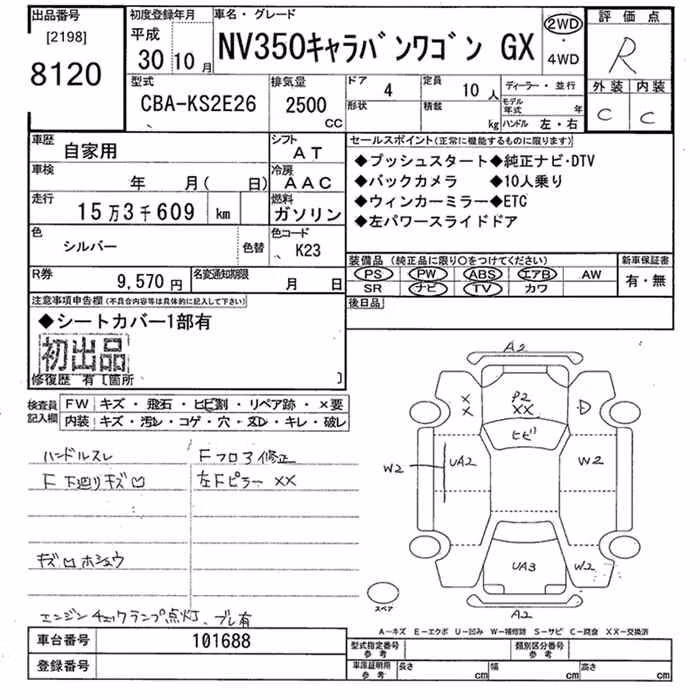 出品番号
[2198]
8120
初度登録年月
平成
30 10月
車名・グレード
NV350キャラバンワゴン GX
2WD
・
4WD
評価点
R
外装 内装
C C
型式
CBA-KS2E26
排気量
2500
CC
ドア
4
定員
10人
形状
積載
kg
ディーラー・並行
モデル年式 年
ハンドル 左・右
車歴
自家用
シフト
AT
車検
年 月( 日)
冷房
AAC
走行
15万3千609 km
燃料
ガソリン
色
シルバー
色替
色コード
K23
R券
9,570円
名変通知期限
月 日
セールスポイント(正常に機能するものに限ります)
◆プッシュスタート◆純正ナビ・DTV
◆バックカメラ ◆10人乗り
◆ウィンカーミラー◆ETC
◆左パワースライドドア
装備品 (純正品に限り○をつけてください)
PS PW ABS エアB AW
SR ナビ TV カワ
新車保証書
有・無
後日品
注意事項申告欄(不具合内容等は具体的に記入して下さい)
◆シートカバー1部有
初出品
修復歴 有 〔箇所 〕
検査員
記入欄
FW キズ・飛石・ヒビ割・リペア跡・×要
内装 キズ・汚レ・コゲ・穴・ヌレ・キレ・破レ
ハンドルスレ
Fフロア修正
F下廻りキズ凹
左Fピラー ××
キズ凹ホシュウ
エンジンチェックランプ点灯、ブレ有
A2
×
×
P2
××
ヒビ
W2
UA2
W2
UA3
W2
A2
スペア
A−キズ E−エクボ U−凹み W−補修跡 S−サビ C−腐食 XX−交換済
車台番号
101688
登録番号
型式指定番号
参考
類別区分番号
参考
車庫証明用
参考
長さ cm 幅 cm 高さ cm